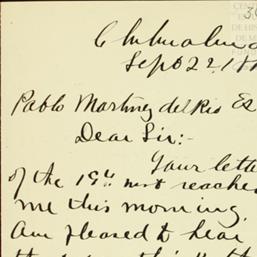 Chihuahua
Sept 22, 18
Pablo Martinez del Rio Es
Dear Sir:-
Your lette
of the 19th inst reache
me this morning.
Am pleased to hear